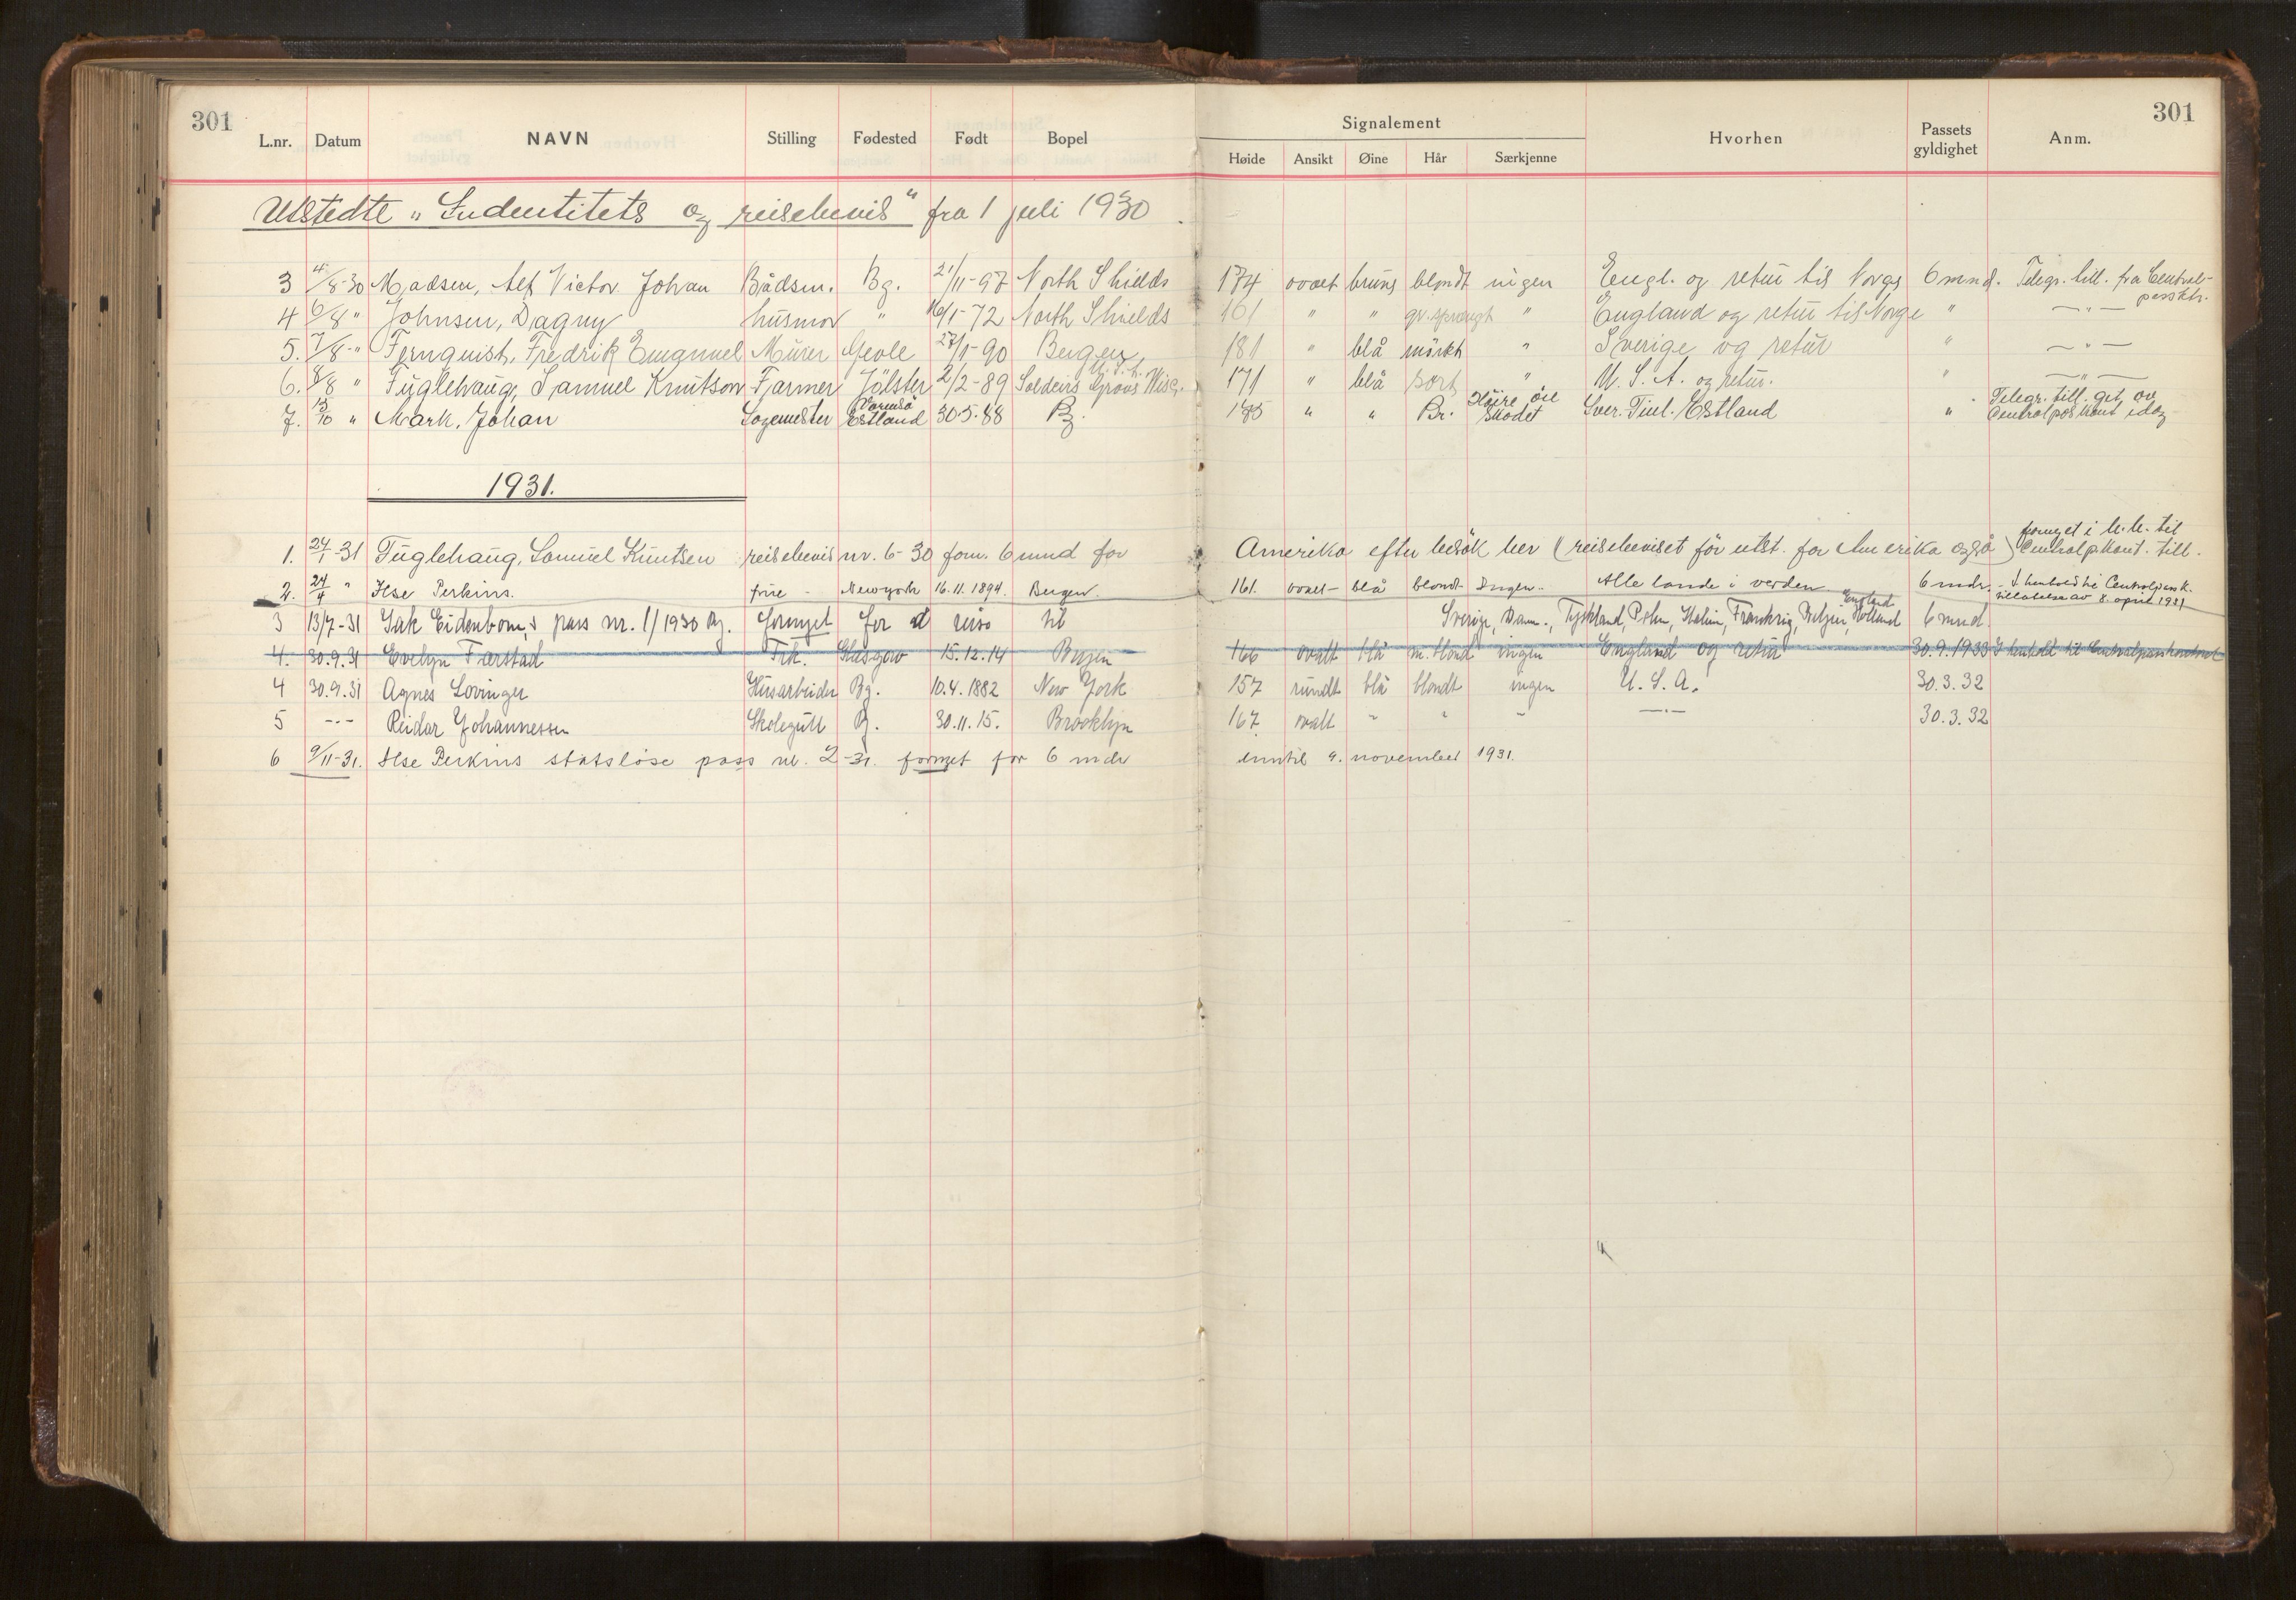 301
301
L.nr. Datum NAVN Stilling Fødested Født Bopel
Signalement
Høide Ansikt Øine Hår Særkjenne Hvorhen Passets gyldighet Anm.
Utstedte "Indentitets og reisebevis" fra 1 juli 1930
3 4/8-30 Madsen, Alf Victor Johan Bådsm. Bg. 21/11-97 North Shields 174 ovalt brune blondt ingen Engl. og retur til Norge 6 mnd. Telegr. till. fra Central-
passktr.
4 6/8 " Johnsen, Dagny husmor " 16/1-72 North Shields 161 " " gr. sprængt " England og retur til Norge " —"—
5. 7/8-" Fernquist, Fredrik Emanuel Murer Gevle 27/1-90 Bergen 181 " blå mörkt " Sverige og retur " —"—
U.S.A.
6. 8/8 " Fuglehaug, Samuel Knutson Farmer Jölster 2/2-89 Soldeirs Grove Wisc. 171 " blå sort " U.S.A. og retur. " —"—
Vormsö Höire öie Telegr. till. git. av
7. 13/10 " Mark, Johan Logemester Estland 30.5.88 Bg. 185 " " Br. skadet Sver. Finl. Estland " Centralpaskont idag
1931.
fornyet i h.h. til
1. 24/1-31 Fuglehaug, Samuel Knutsen reisebevis nr. 6-30 forn. 6 mnd for Amerika efter besök her (reisebeviset för utst. for Amerika også) Centralp.kont. till.
2. 24/4 " Ilse Perkins. frue - Newyork 16.11.1894. Bergen. 161. ovalt - blå blondt Ingen - Alle lande i verden 6 mdr. - I henhold til Centralpassk.
tillatelse av 8. april 1931
England
3 13/7-31 Isak Eidenbom,s pass nr. 1/1930 Bg. fornyet for reise til Sverige, Danm., Tyskland, Polen, Italien, Frankrig, Belgien, Holland 6 mnd.
4. 30.9.31 Evelyn Farstad Frk. Glasgow 15.12.14 Bergen 166 ovalt blå m. blond ingen England og retur 30.9.1933 I henhold til Centralpasskontoret
4 30.9.31 Agnes Lovinger Husarbeider Bg. 10.4.1882 New York 157 rundt blå blondt ingen U.S.A. 30.3.32
5 -"- Reidar Johannessen Skolegutt B. 30.11.15. Brooklyn 167 ovalt " " " —"— 30.3.32
6 9/11-31. Ilse Perkins statslöse pass nr. 2-31. fornyet for 6 mdr inntil 9. november 1931.